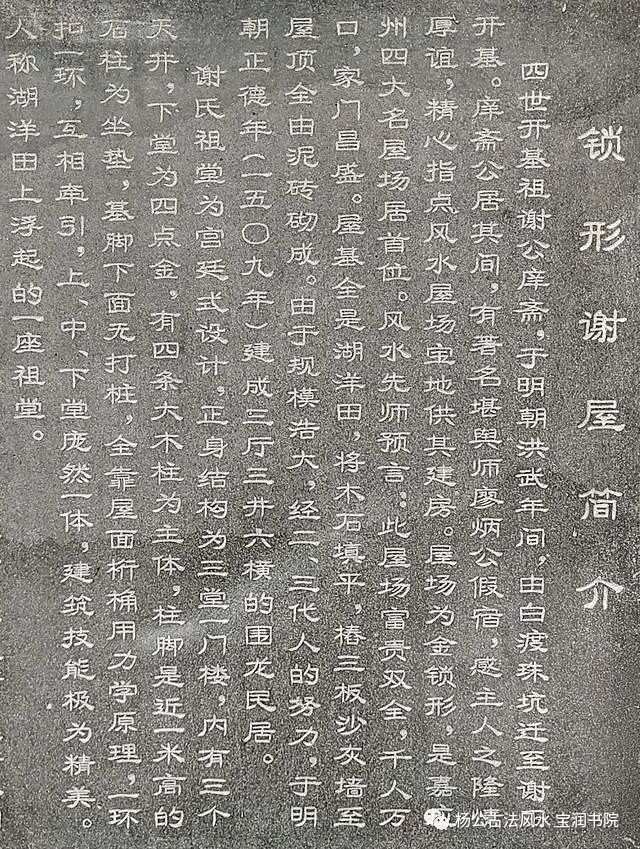 锁形谢屋简介
四世开基祖谢公庠斋,于明朝洪武年间,由白渡珠坑迁至谢田
开基。庠斋公居其间,有著名堪舆师廖炳公假宿,感主人之隆情
厚谊,精心指点风水屋场宝地供其建房。屋场为金锁形,是嘉应
州四大名屋场居首位。风水先师预言:此屋场富贵双全,千人万
口,家门昌盛。屋基全是湖洋田,将木石填平,椿三板沙灰墙至
屋顶全由泥砖砌成。由于规模浩大,经二、三代人的努力,于明
朝正德年(一五〇九年)建成三厅三井六横的围龙民居。
谢氏祖堂为宫廷式设计,正身结构为三堂一门楼,内有三个
天井,下堂为四点金,有四条大木柱为主体,柱脚是近一米高的
石柱为坐垫,基脚下面无打桩,全靠屋面桁桶用力学原理,一环
扣一环,互相牵引,上、中、下堂庞然一体,建筑技能极为精美。
人称湖洋田上浮起的一座祖堂。
杨公古法风水 宝润书院